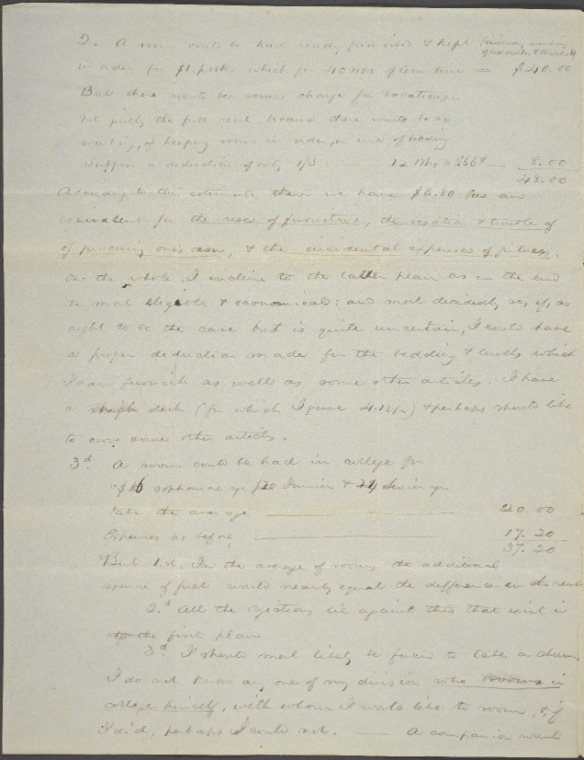 2. A room could be had ready furnished & kept (including washing
in order for $1 pr wk. which for 40 wks of term time = $40.00
But there would be some charge for vacations
not quite the full rent because there would be no
washing, & keeping room in order, or use of bedding
Suppose a deduction of only 1/3 12 wks 8.00
48.00
According to this estimate then we have $6.80 as an
equivalent for the use of furniture, the vexation & trouble of
of procuring one's own, & the incidental expenses of fixtures.
On the whole, I incline to the latter plan as in the end
the most eligible & economical: and most decidedly so, if, as
ought to be the case but is quite uncertain, I could have
a proper deduction made for the bedding & towels which
I can furnish as well as some other articles. I have
a desk (for which I gave ) & perhaps should like
to own some other articles.
3d A room could be had in college for
$16 sophomore yr $20 Junior & Senior yr
Take the average 20.00
Expenses as before 17.20
37.20
But 1st. In the average of rooms the additional
expense of fuel would nearly equal the difference in the rent
2.d All the objections lie against this that exist in
the first plan.
3d I should most likely be forced to take a chum
I do not know any one of my division who rooms in
college himself, with whom I would like to room, & if
I did, perhaps I could not. — A companion would